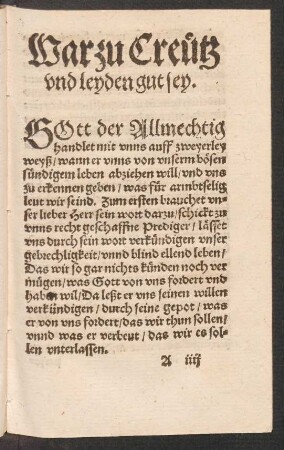 Warzu Creütz
vnd leyden gut sey.
GOtt der Allmechtig
handlet mit vnns auff zweyerley
weyß/ wann er vnns von vnserm bösen
sündigem leben abziehen will/ vnd vns
zu erkennen geben/ was für armbtselig
leut wir seind. Zum ersten brauchet vn-
ser lieber Herr sein wort darzu/ schickt zu
vnns recht geschaffne Prediger/ lässet
vns durch sein wort verkündigen vnser
gebrechligkeit/ vnnd blind ellend leben/
Das wir so gar nichts künden noch ver
mügen/ was Gott von vns fordert vnd
haben wil/ Da leßt er vns seinen willen
verkündigen/ durch seine gepot/ was
er von vns fordert/ das wir thun sollen/
vnnd was er verbeut/ das wir es sol-
len vnterlassen.
A iiij